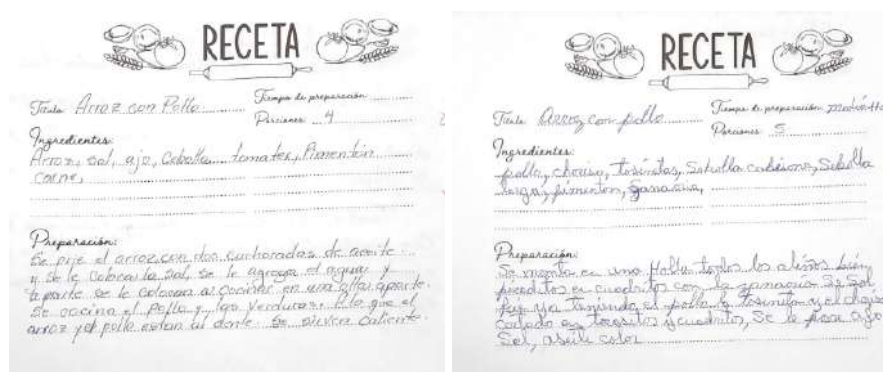 RECETA
Título Arroz con Pollo Tiempo de preparación
Porciones 4
Ingredientes:
Arroz, sal, ajo, Cebolla tomates, Pimentón
carne,
Preparación:
Se frie el arroz con dos cucharadas de aceite
y se le coloca la sal, se le agrega el agua y
aparte se le colocan a cocinar en una olla aparte.
Se cocina el Pollo y las Verduras. que el
arroz y el pollo estan al dente. Se sirven caliente.
RECETA
Título Arroz con pollo Tiempo de preparación
Porciones 5
Ingredientes:
pollo, choriso, Sebolla Sebolla
larga, pimenton, Sanaoria,
Preparación:
Se monta en una todos los aliños bien
picaditos en cuadritos con la sanaoria Se
ya teniendo el pollo y el
cortado en y cuadritos, Se le pone ajo
Sal, color